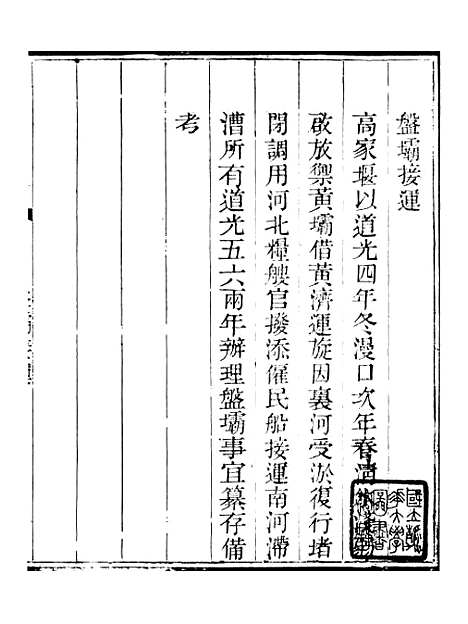 盤壩接運
高家堰以道光四年冬漫口次年春
啟放禦黃壩借黃濟運旋因裏河受淤復行堵
閉調用河北糧艘官撥添僱民船接運南河滯
漕所有道光五六兩年辦理盤壩事宜纂存備
考